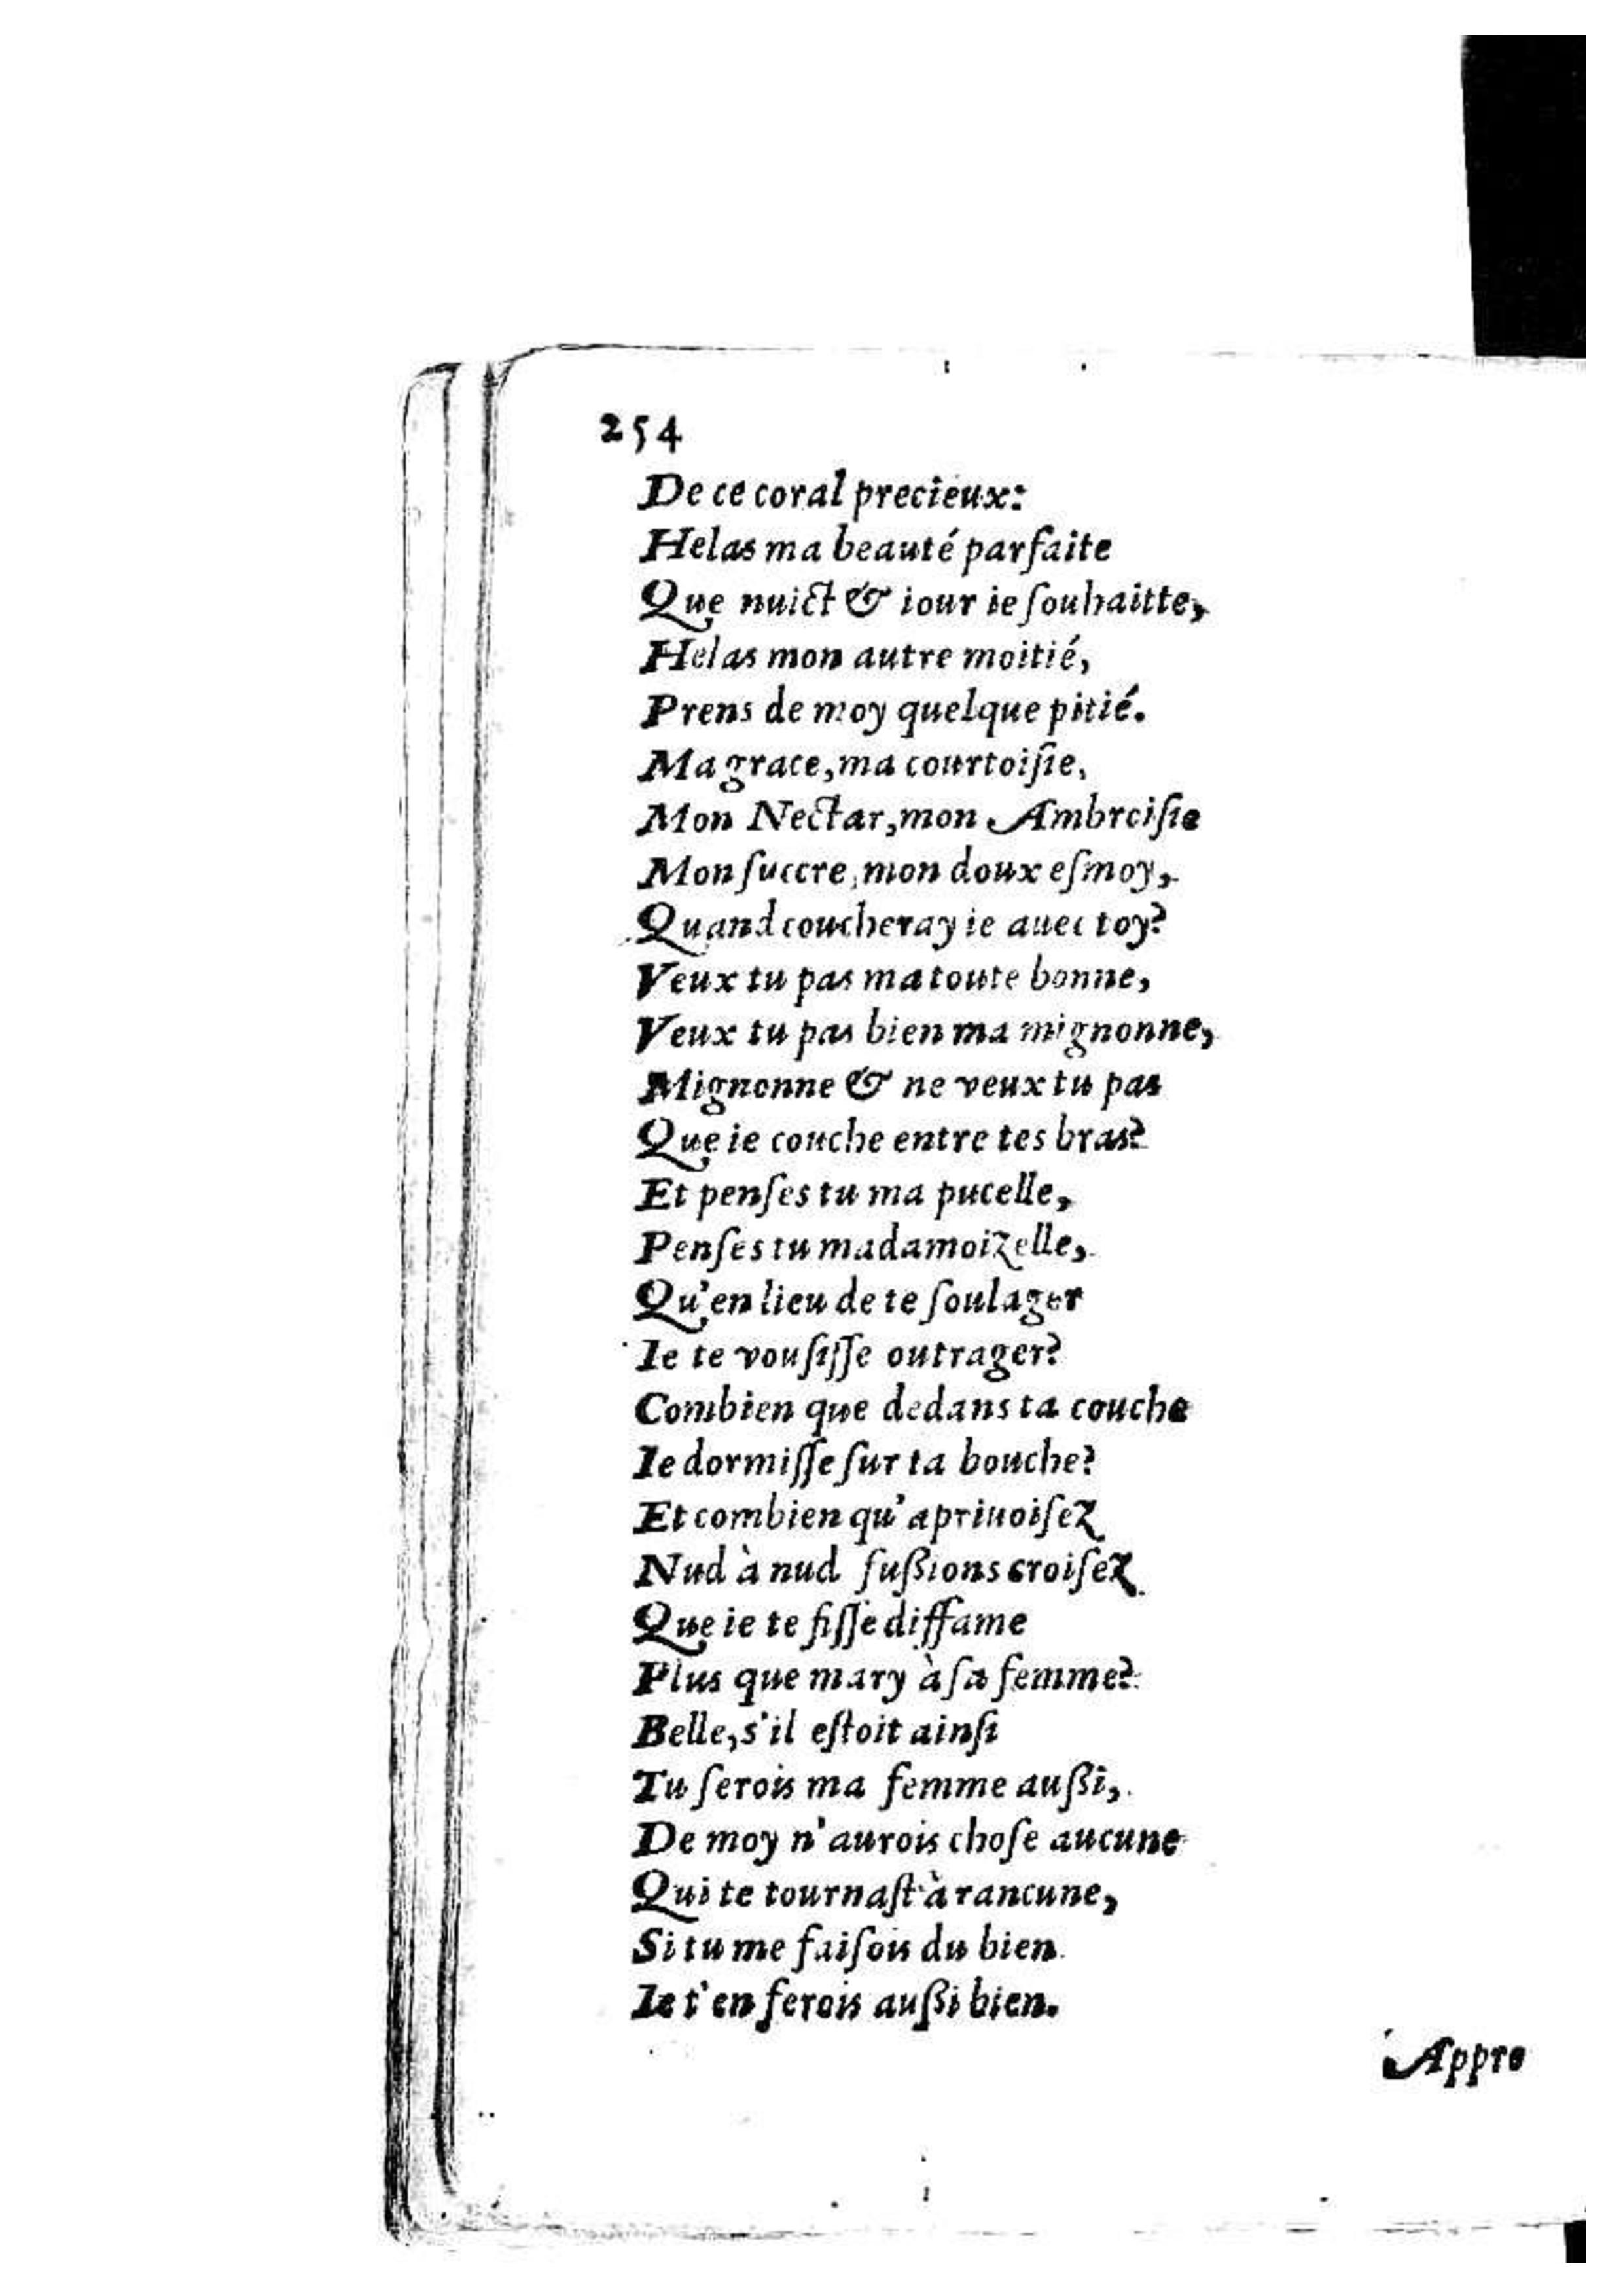 254
De ce coral precieux:
Helas ma beauté parfaite
Que nuict & iour ie ſouhaitte,
Helas mon autre moitié,
Prens de moy quelque pitié.
Ma grace, ma courtoiſie,
Mon Nectar, mon Ambroiſie
Mon ſuccre, mon doux eſmoy,
Quand coucheray ie auec toy?
Veux tu pas ma toute bonne,
Veux tu pas bien ma mignonne,
Mignonne & ne veux tu pas
Que ie couche entre tes bras?
Et penſes tu ma pucelle,
Penſes tu madamoizelle,
Qu'en lieu de te ſoulager
Ie te vouſiſſe outrager?
Combien que dedans ta couche
Ie dormiſſe ſur ta bouche?
Et combien qu'apriuoiſez
Nud à nud fußions croiſez
Que ie te fiſſe diffame
Plus que mary à ſa femme?
Belle, s'il eſtoit ainſi
Tu ſerois ma femme außi,
De moy n'aurois choſe aucune
Qui te tournaſt à rancune,
Si tu me faiſois du bien
Ie t'en ferois außi bien.
Appro